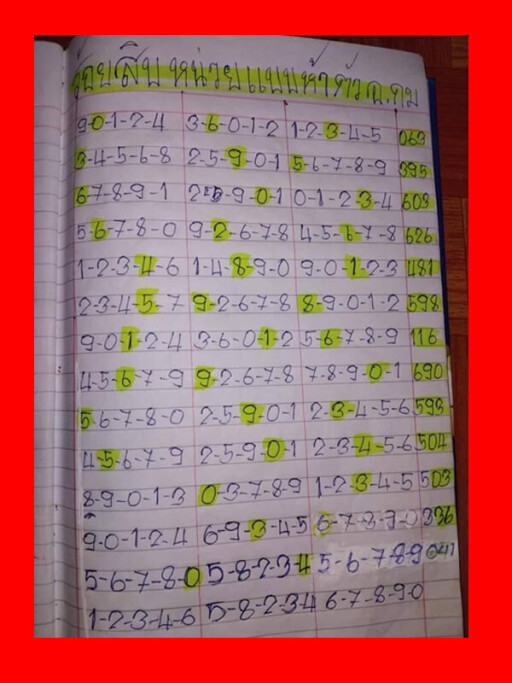 ร้อยสิบหน่วยแบบห้าตัว อ.ถม
9-0-1-2-4 3-6-0-1-2 1-2-3-4-5 063
3-4-5-6-8 2-5-9-0-1 5-6-7-8-9 395
6-7-8-9-1 2-5-9-0-1 0-1-2-3-4 603
5-6-7-8-0 9-2-6-7-8 4-5-6-7-8 626
1-2-3-4-6 1-4-8-9-0 9-0-1-2-3 481
2-3-4-5-7 9-2-6-7-8 8-9-0-1-2 598
9-0-1-2-4 3-6-0-1-2 5-6-7-8-9 116
4-5-6-7-9 9-2-6-7-8 7-8-9-0-1 690
5-6-7-8-0 2-5-9-0-1 2-3-4-5-6 593
4-5-6-7-9 2-5-9-0-1 2-3-4-5-6 504
8-9-0-1-3 0-3-7-8-9 1-2-3-4-5 503
9-0-1-2-4 6-9-3-4-5 6-7-8-9-0 336
5-6-7-8-0 5-8-2-3-4 5-6-7-8-9 041
1-2-3-4-6 5-8-2-3-4 6-7-8-9-0